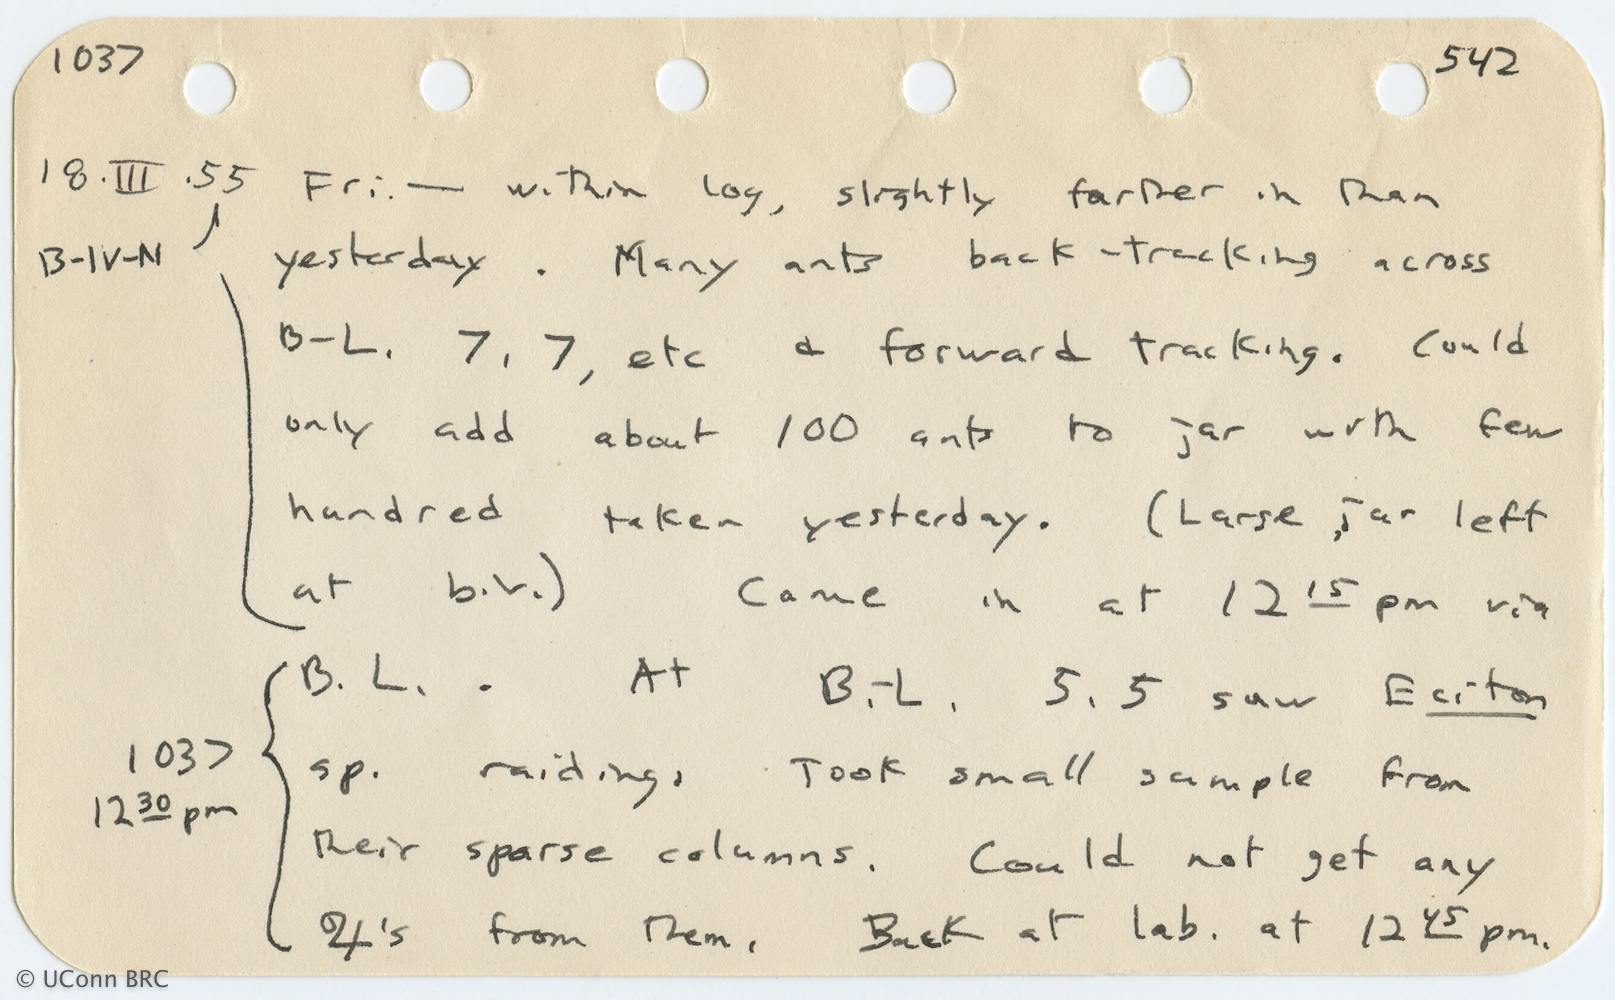 1037
542
18.III.55 Fri. — within log, slightly farther in than
B-IV-N yesterday. Many ants back-tracking across
B-L. 7.7, etc & forward tracking. Could
only add about 100 ants to jar with few
hundred taken yesterday. (Large jar left
at b.v.) Came in at 12 15 pm via
B. L. . At B.-L. 5.5 saw Eciton
1037 sp. raiding. Took small sample from
12 30 pm
their sparse columns. Could not get any
's from them. Back at lab. at 12 45 pm.
© UConn BRC